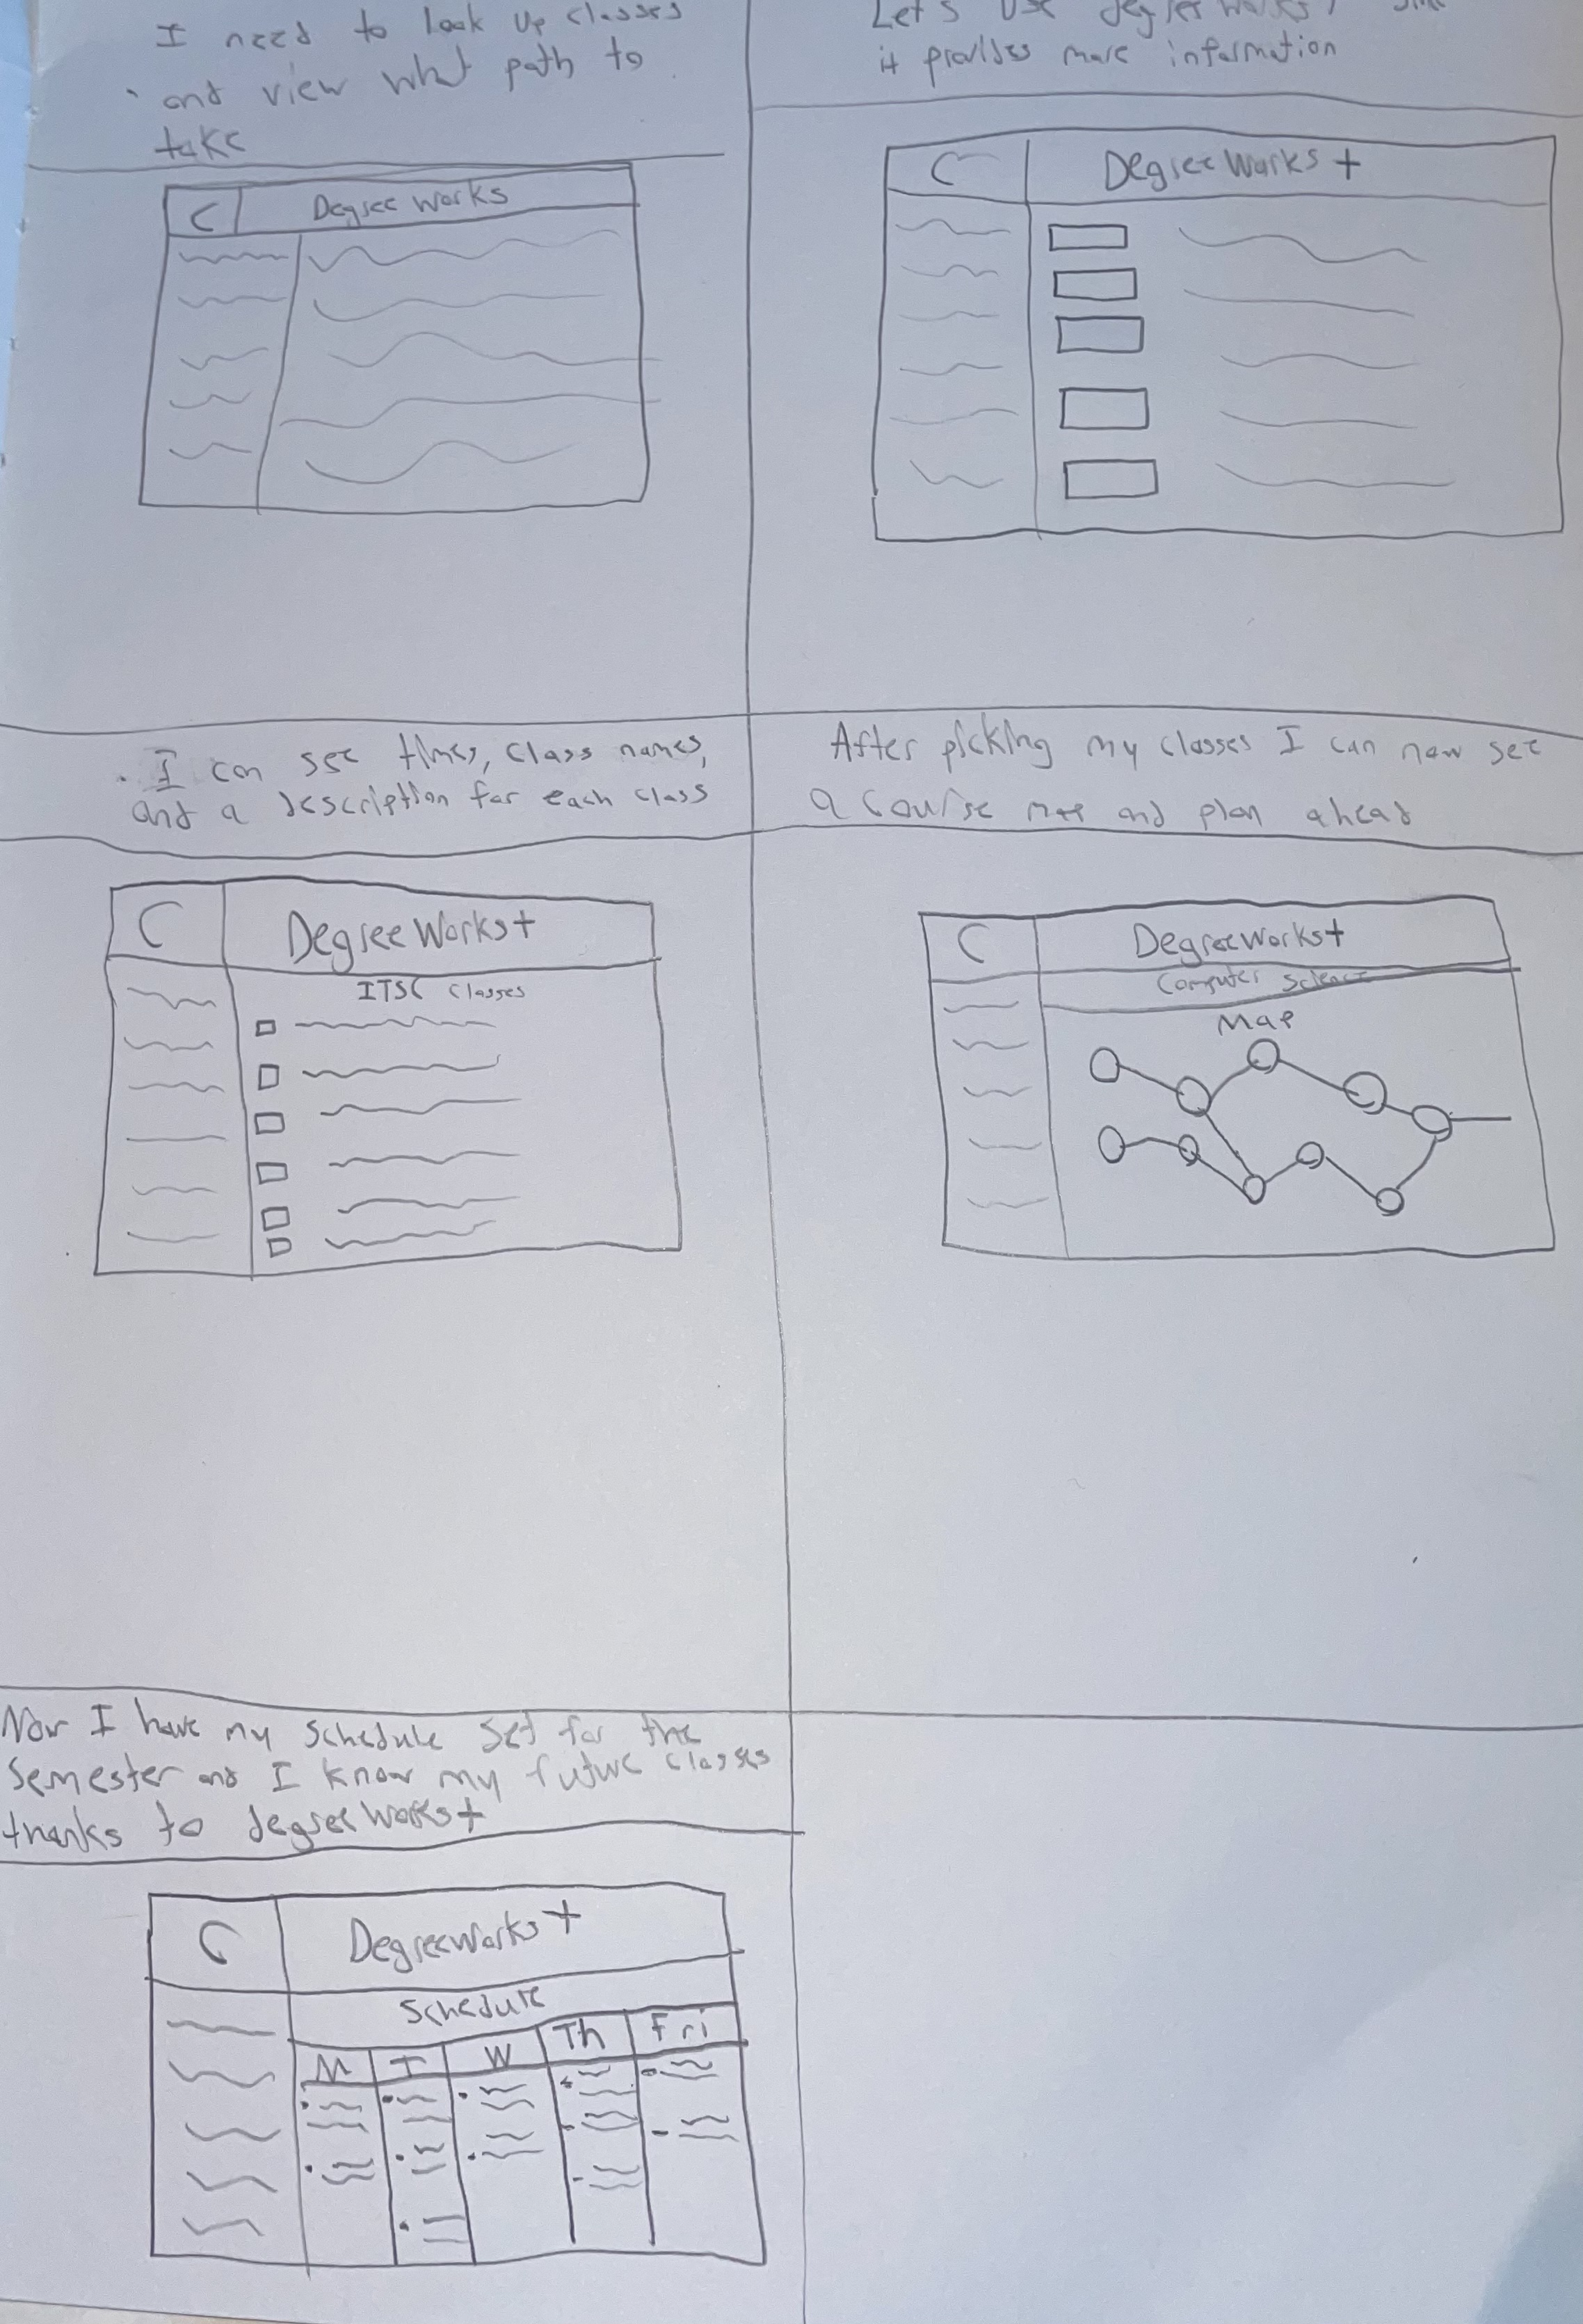 I need to look up classes
and view what path to
take
C Degree Works
Let's use degreeworks+
it provides more information
C Degree Works +
I can see times, class names,
and a description for each class
C DegreeWorks+
ITSC classes
After picking my classes I can now see
a course map and plan ahead
C DegreeWorks+
Computer Science
Map
Now I have my schedule set for the
semester and I know my future classes
thanks to degreeworks+
C Degreeworks+
Schedule
M T W Th Fri